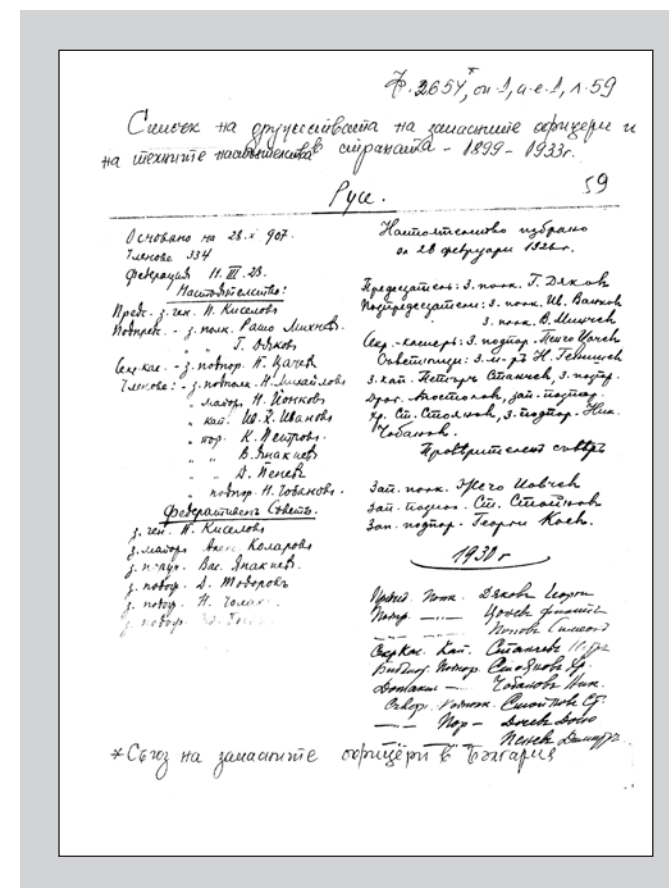 Ф. 2654*, оп. 1, а.е. 1, л. 59
Списък на дружествата на запасните офицери и
на техните настоятелства в страната - 1899 - 1933г.
59
Русе.
Основано на 28.X 907.
Членове 334
Федерация 11.III.23.
Настоятелство:
Предс. з. ген. Н. Киселовъ
Подпредс. - з. полк. Рашо
" " Т. Дяковъ
Сек.-кас. - з. подпор. П. Цачев
Членове: - з. подполк. Н. Михайловъ
" майоръ Н. Йонковъ
" кап. Ив. Х. Ивановъ
" пор. К. Петровъ
" " В. Знакиевъ
" " Д. Пеневъ
" подпор. Н. Чобановъ.
Федеративенъ Съветъ.
з. ген. Н. Киселовъ
з. майоръ Алек. Коларовъ
з. Вас. Знакиевъ.
з. подпор. Д. Тодоровъ
з. подпор. Н.
з. подпор.
Настоятелство избрано
на 28 февруари 1926г.
Председатель: З. полк. Т. Дяковъ
Подпредседатели: З. полк. Ив. Вълковъ
З. полк. В.
Секр.-касиеръ: З. подпор. Пенчо Цачевъ
Съветници: З. м-ръ Н.
З. кап. Петъръ Станчев, З. подпор.
Драг. Апостолов, зап. подпор.
Хр. Ст. Стоянов, З. подпор. Ник.
Чобанов.
Проверителенъ съветъ
Зап. полк. Жечо Иовчев
Зап. подпол. Ст. Стойновъ
Зап. подпор. Георги Коев.
1930 г
Председ. Полк. Дяковъ Георги
Подпр. — " — Цоневъ Димитъръ
— — Поповъ Симеонъ
Сек. Кас. Кап. Станчевъ Петъръ
Библиот. Подпор. Стояновъ Хр.
Домакин — Чобановъ Ник.
Подполк. Стойновъ Ст.
— — Пор - Доневъ
— " — Пеневъ Димитъръ
*Съюз на запасните офицери в България